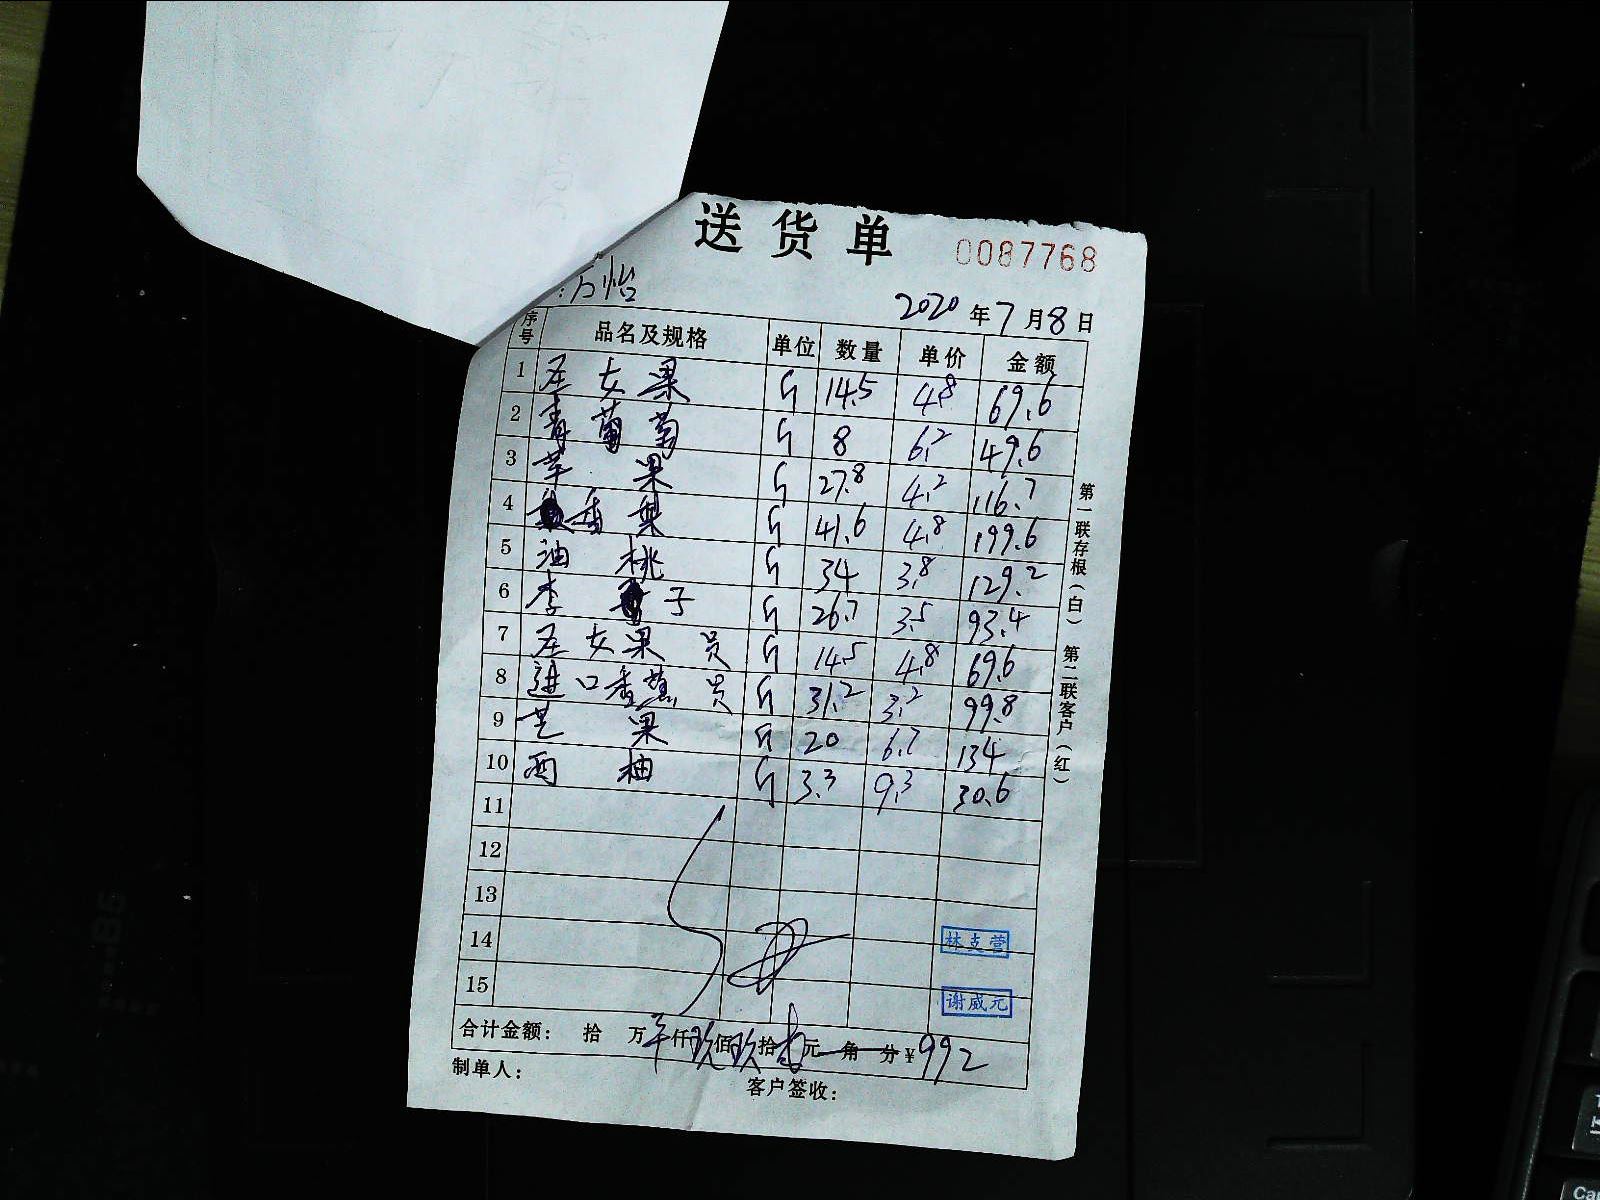 送货单 0087768
：万怡
2020年7月8日
序号 品名及规格 单位 数量 单价 金额
1 圣女果 斤 14.5 4.8 69.6
2 青葡萄 斤 8 6.2 49.6
3 苹果 斤 27.8 4.2 116.7
4 香梨 斤 41.6 4.8 199.6
5 油桃 斤 34 3.8 129.2
6 李子 斤 26.7 3.5 93.4
7 圣女果 员 斤 14.5 4.8 69.6
8 进口香蕉 员 斤 31.2 3.2 99.8
9 芒果 斤 20 6.7 134
10 西柚 斤 3.3 9.3 30.6
11
12
13
14 林支营
15 谢威元
合计金额： 拾 万 仟玖佰玖拾 元 角 分￥992
制单人： 客户签收：
第一联存根（白） 第二联客户（红）